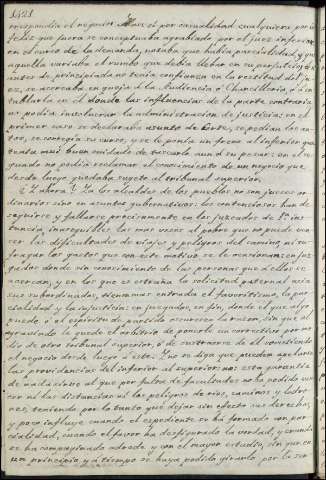 1421
correspondia el negocio. Mas si por casualidad cualquiera por in-
feliz que fuera se conceptuaba agraviado por el juez inferior
en el curso de la demanda, notaba que habia parcialidad, y
aquella variaba el rumbo que debia llevar en su perjuicio,
antes de principiada no tenia confianza en la rectitud del ju-
ez, se acercaba en queja á la Audiencia ó Chancilleria ó en-
tablarla en el donde las influencias de la parte contraria
no podia involucrar la administracion de justicia: en el
primer caso se declaraba asunto de Corte, se pedian los au-
tos, se corregia su curso, y se le ponia un freno al inferior que
tenia mui buen cuidado de buscarlo aun á su pesar: en el se-
gundo no podia reclamar el conocimiento de un negocio que
desde luego quedaba sugeto al tribunal superior.
¿Y ahora? Ya los alcaldes de los pueblos no son jueces or-
dinarios sino en asuntos gubernativos: los contenciosos han de
seguirse y fallarse precisamente en los juzgados de 1ª ins-
tancia, inasequibles las mas veces al pobre que no puede ven-
cer las dificultades de viajes y peligros del camino, ni su-
fragar los gastos que con este motivo se le ocasionan en juz-
gados donde sin conocimiento de las personas que á ellos se
acercan, y en los que es estraña la solicitud paternal acia
sus subordinados, tienen mas entrada el favoritismo, la par-
cialidad y la injusticia; en juzgados, en fin, donde el feroz or-
gullo ó el espiritu de partido oscurece la razon, sin que al
agraviado le quede el arbitrio de ponerle un correctivo por me-
dio de otro tribunal superior, ó de sustraerse de él sometiendo
el negocio desde luego á este. Y no se diga que pueden apelarse
las providencias del inferior al superior: no: esta garantia
de nada sirve al que por falta de facultades no ha podido ven-
cer ni las distancias ni los peligros de rios, caminos y ladro-
nes, teniendo por lo tanto que dejar sin efecto sus derechos,
y poco influye cuando el espediente se ha formado con par-
cialidad, cuando el favor ha desfigurado la verdad, y cuando
es ha compaginado adrede y con el mayor estudio, sin que en
un principio y á tiempo se haya podido girarlo por la sen-